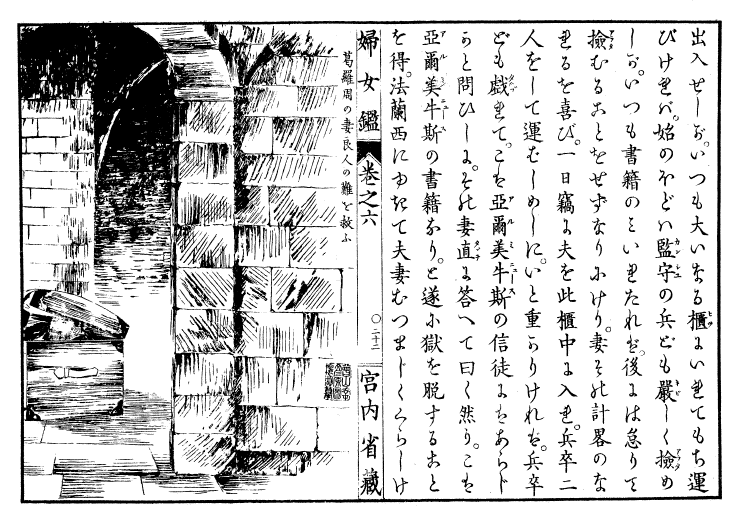 出入せしが。いつも大いなる櫃にいれてもち運
びければ。始のほどハ監守の兵ども嚴しく撿め
しが。いつも書籍のミいれたれば。後には怠りて
撿むることをせずなりにけり。妻その計畧のな
れるを喜び。一日竊に夫を此櫃中に入れ。兵卒二
人をして運ばしめしに。いと重かりければ。兵卒
ども戯れて。こは亞爾美牛斯の信徒にはあらじ
かと問ひしに。その妻直に答へて曰く然り。こは
亞爾美牛斯の書籍なり。と遂に獄を脱すること
を得。法蘭西にゆきて夫妻むつましくくらしけ
婦女鑑 卷之六 〇二十二 宮内省藏
葛羅周の妻良人の難を救ふ